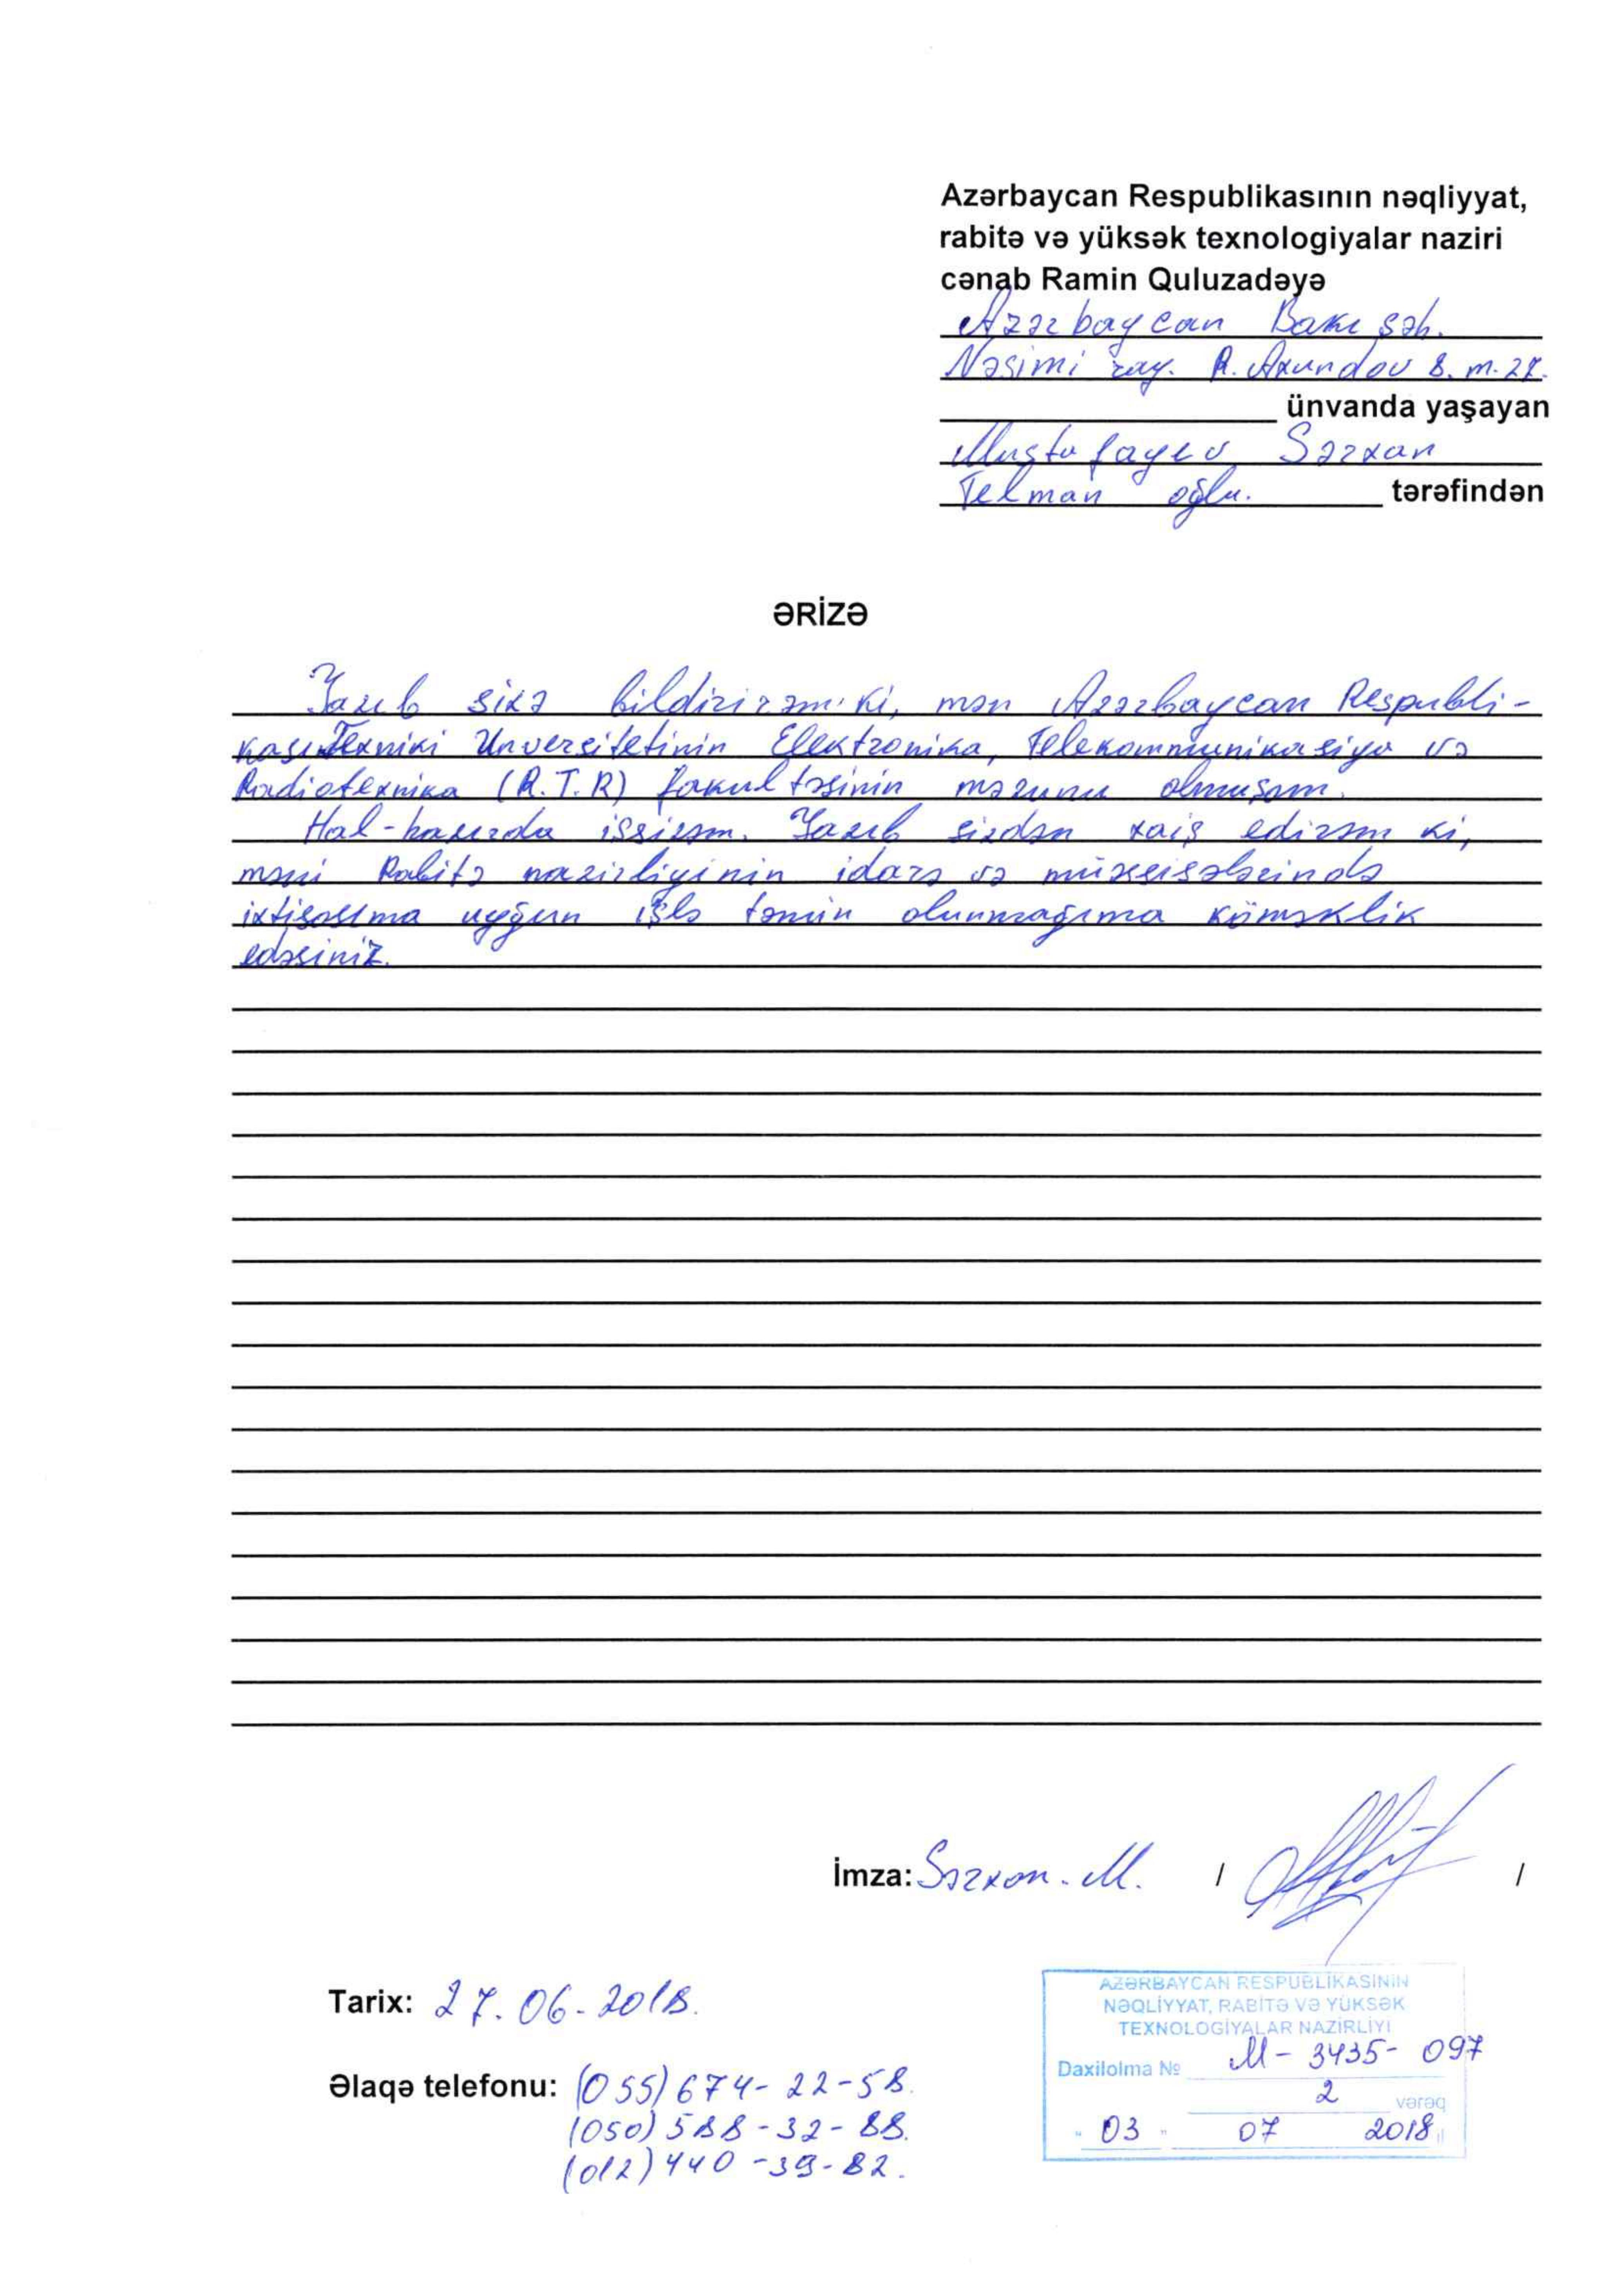 Azərbaycan Respublikasının nəqliyyat,
rabitə və yüksək texnologiyalar naziri
cənab Ramin Quluzadəyə
Azərbaycan Bakı şəh.
Nəsimi ray. R. Axundov 8. m. 27.
ünvanda yaşayan
Mustafayev Sərxan
Telman oğlu. tərəfindən
ƏRİZƏ
Yazıb sizə bildirirəm ki, mən Azərbaycan Respubli-
kası Texniki Unversitetinin Elektronika, Telekommunikasiya və
Radiotexnika (R.T.R) fakultəsinin məzunu olmuşam.
Hal-hazırda işsizəm. Yazıb sizdən xaiş edirəm ki,
məni Rabitə nazirliyinin idarə və müəssisələrində
ixtisasıma uyğun işlə təmin olunmağıma köməklik
edəsiniz.
İmza: Sərxan. M. / /
Tarix: 27.06-2018.
Əlaqə telefonu: (055) 674-22-58.
(050) 588-32-88.
(012) 440-39-82.
AZƏRBAYCAN RESPUBLİKASININ
NƏQLİYYAT, RABİTƏ VƏ YÜKSƏK
TEXNOLOGİYALAR NAZİRLİYİ
Daxilolma № M-3435-097
2 vərəq
" 03 " 07 2018 il